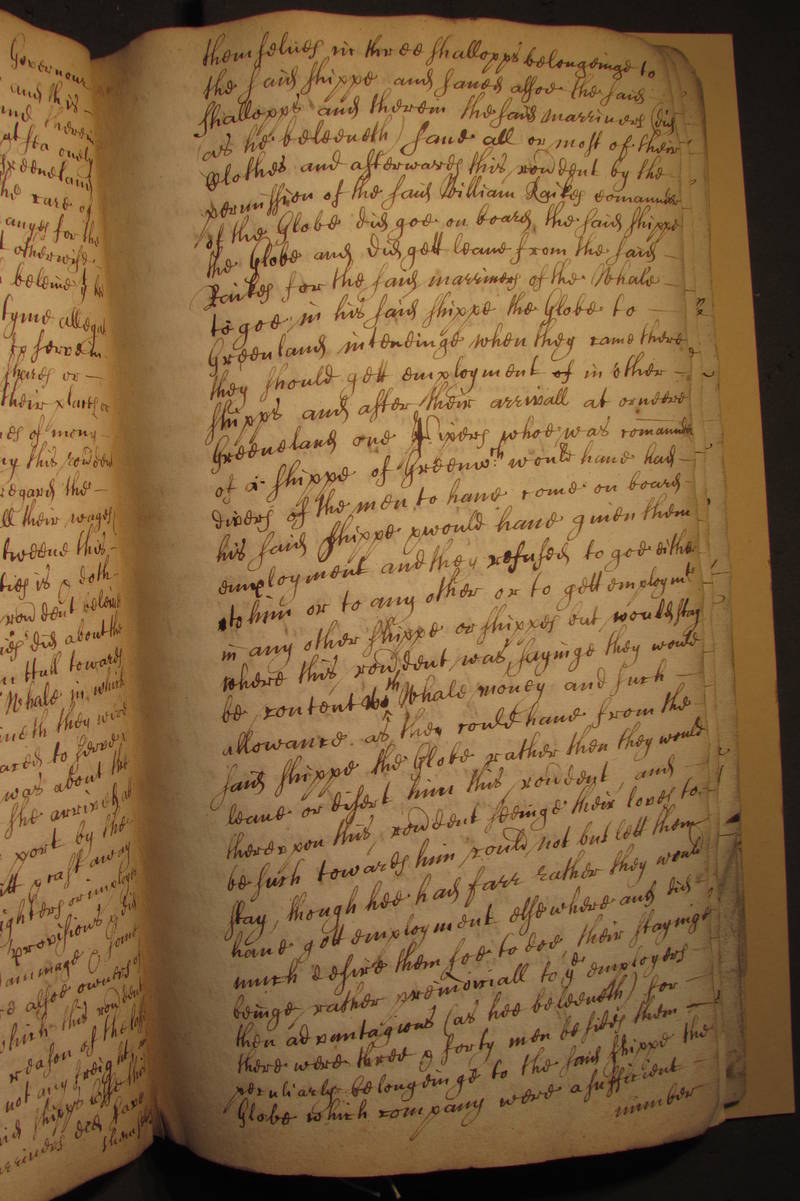 Governour
and this
at sea onely
Greeneland
the care of
anges for the
t otherwise
beleive
tyme allegat
to serve in
shares or
their
es of mony
ny this ronđent
regard the
ll their wages
tweene this
ties is & doth
ronđent beleive
did about the
Hull towards
Whale in which
ineth they were
ared to serve
was about the
she arrived at
port by the
cast away
ighters or imploy
provisions & did
Dammage & some
alsoe owners of
which this ronđent
reason of the losse
not any freight
aid shipps losse this
arriners did save
themselves
themselves in three shallopps belongeinge to
the said shippe and saved alsoe the said
shallopps and therein the said marriners (did
(as he beleeveth) save all or most of their
Clothes and afterwardes this ronđent by the
permission of the said William Raikes comander
of the Globe did goe on board the said shippe
the Globe and did gett leave from the said
Raikes for the said marriners of the Whale
to goe in his said shippe the Globe to
Greenland intendinge when they came there
they should gett employment of in other
shipps and after their arrivall at or neere
Greeneland one Pixers whoe was comander
of a shippe of Greenw.ch would have had
divers of the men to have come on board
his said shippe & would have given them
employment and they refused to goe either
to him or to any other or to gett employmt
in any other shippe or shippes but would stay
where this ronđent was, sayinge they would
be content wth Whale money and such
allowance as they could have from the
said shippe the Globe rather then they would
leave or desert him this ronđent, and
thereupon this ronđent seeinge their loves to
be such towardes him could not but lett them
stay, though hee had farr rather they would
have gott employment elsewhere and did
much desire them soe to doe, their stayinge
beinge rather prejudiciall to ye employers
then advantagious (as hee beleeveth) for
there were three & forty men besides them
peculiarly belongeinge to the said shippe the
Globe which company were a sufficient
number